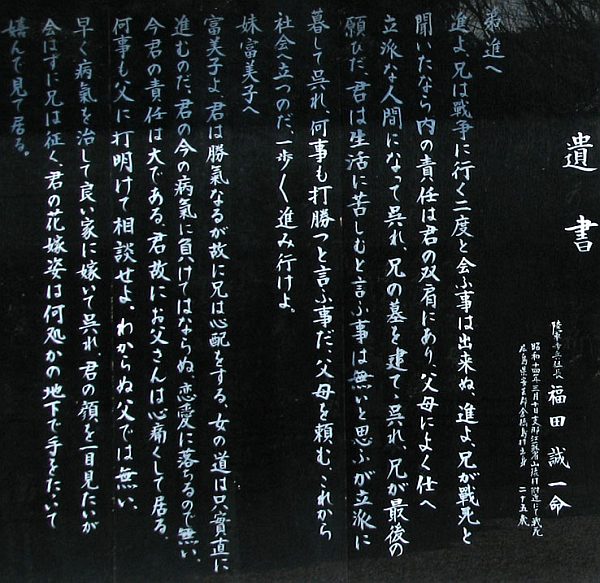 遺書
福田誠一命
昭和十四年三月十日支那江蘇省山後村附近にて戦死
二十五歳
弟 進へ
進よ、兄は戦争に行く二度と会ふ事は出来ぬ、進よ、兄が戦死と
聞いたなら内の責任は君の双肩にあり、父母によく仕へ
立派な人間になって呉れ、兄の墓を建て、呉れ、兄が最後の
願ひだ、君は生活に苦しむと言ふ事は無いと思ふが立派に
暮して呉れ、何事も打勝つと言ふ事だ、父母を頼む、これから
社会へ立つのだ、一歩〱進み行けよ。
妹 富美子へ
富美子よ、君は勝氣なるが故に兄は心配をする、女の道は只一貫直に
進むのだ、君の今の病氣に負けてはならぬ、恋愛に落ちるので無い、
今君の責任は大である、君故にお父さんは心痛して居る、
何事も父に打明けて相談せよ、わからぬ父では無い、
早く病氣を治して良い家に嫁いて呉れ、君の顔を一目見たいが
会はずに兄は征く、君の花嫁姿は何処かの地下で手をたゝいて
嬉んで見て居る。